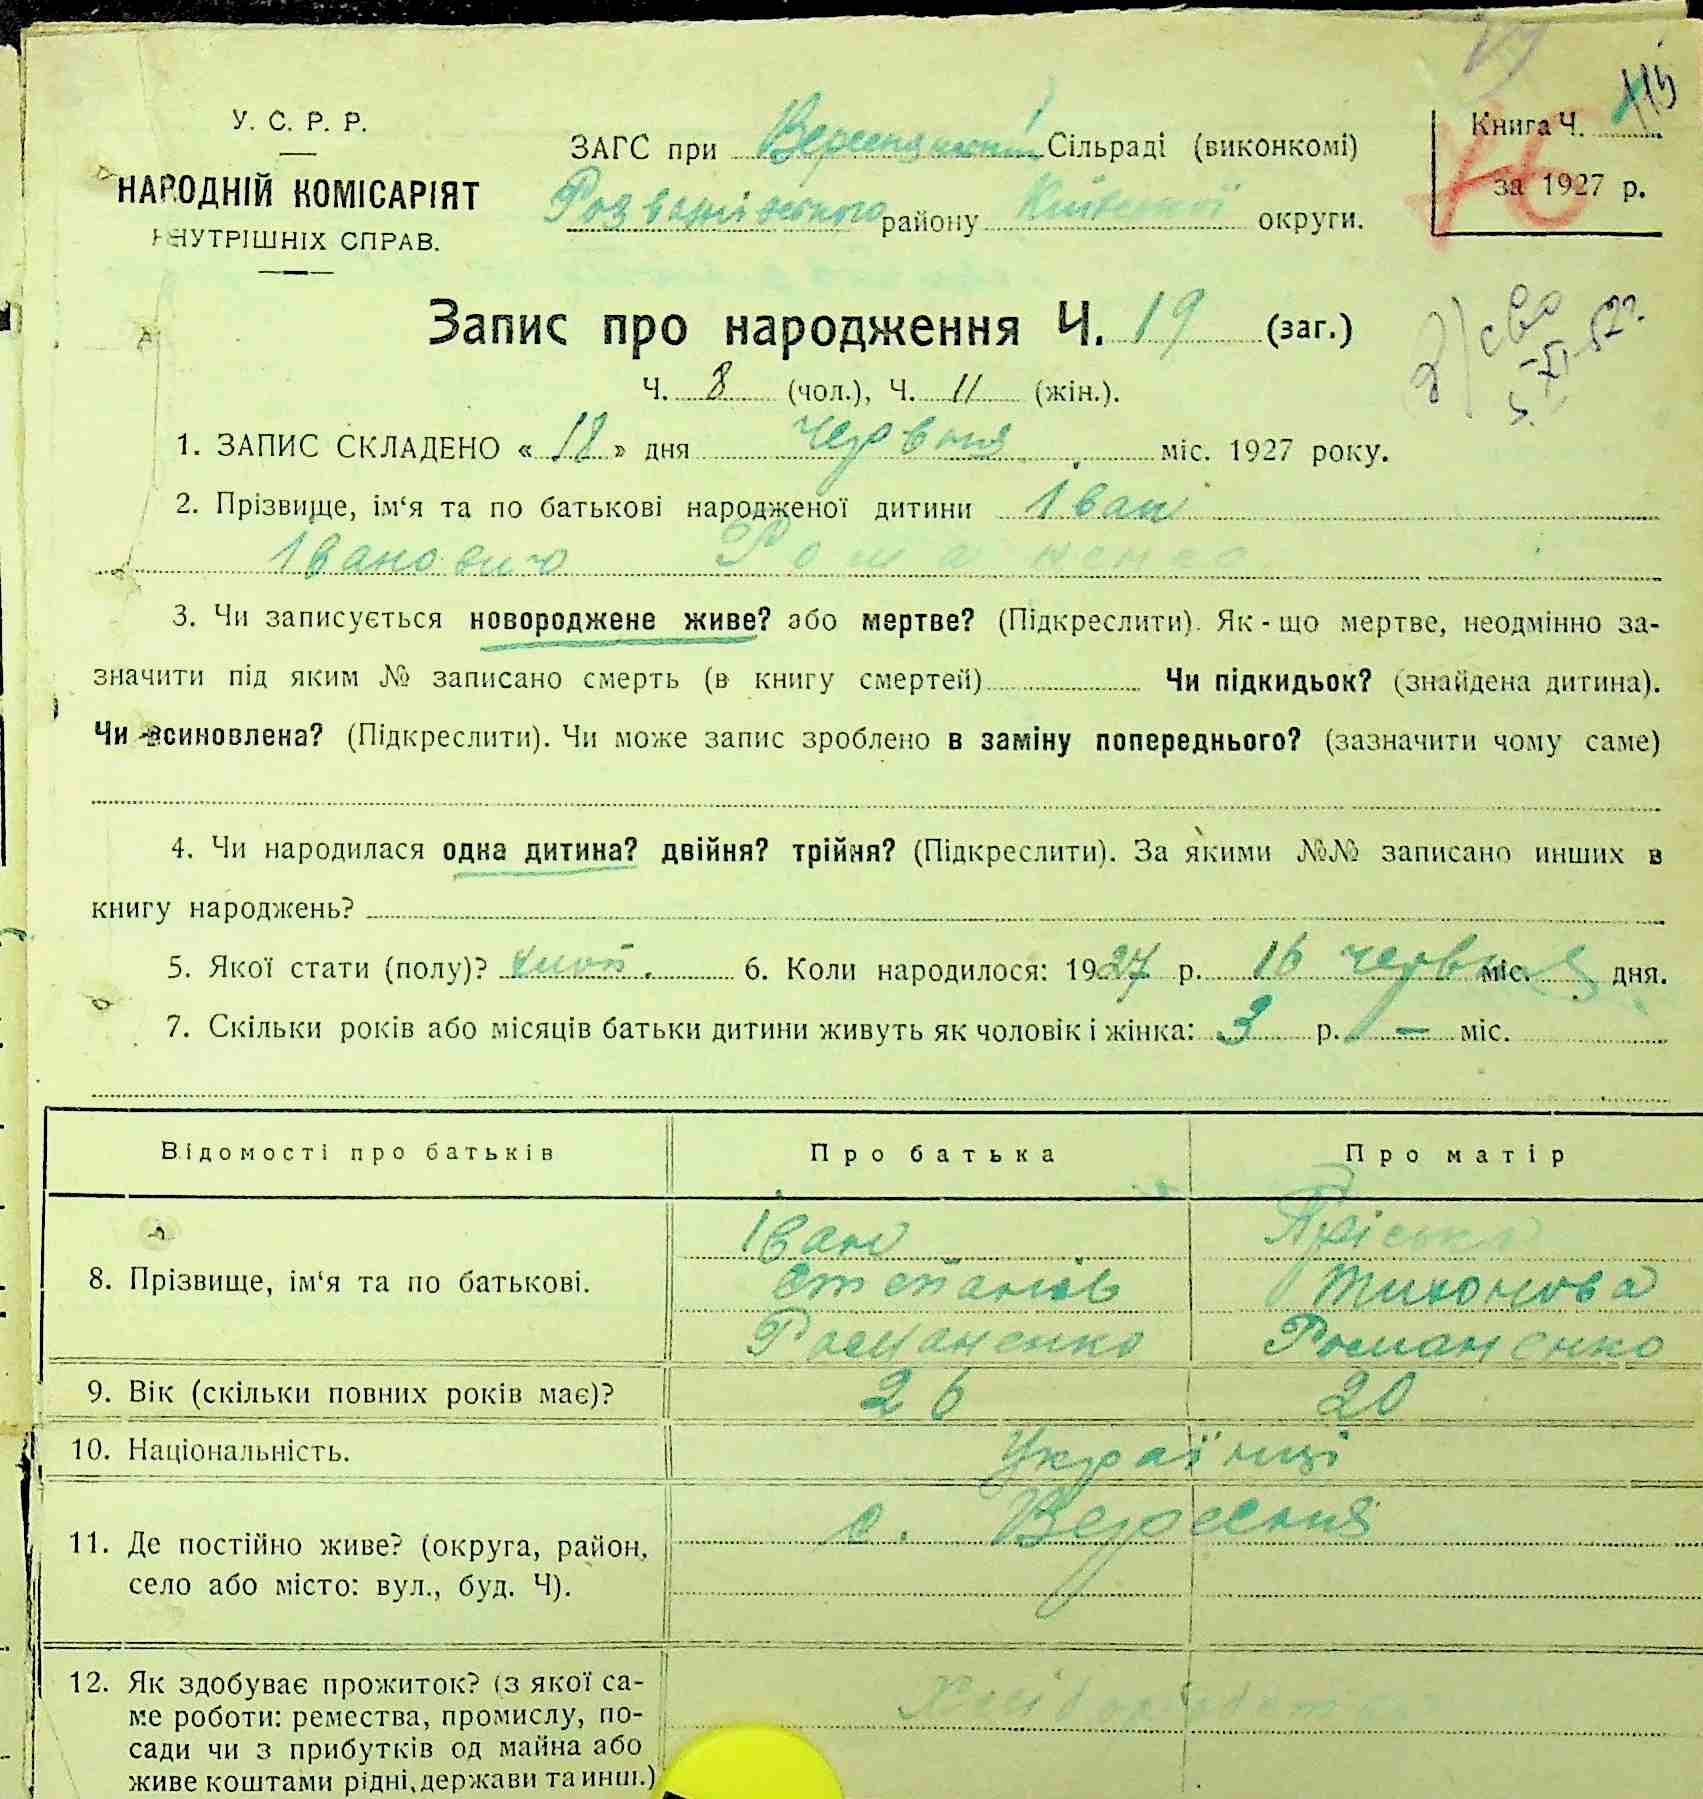 У. С. Р. Р.
НАРОДНІЙ КОМІСАРІЯТ
ВНУТРІШНІХ СПРАВ.
ЗАГС при Сільраді (виконкомі)
району Київської округи.
Книга Ч.
за 1927 р.
115
Запис про народження Ч. 19 (заг.)
Ч. 8 (чол.), Ч. 11 (жін.).
1. ЗАПИС СКЛАДЕНО « 18 » дня червня міс. 1927 року.
2. Прізвище, ім‘я та по батькові народженої дитини Іван
Іванович Романенко
3. Чи записується новороджене живе? або мертве? (Підкреслити). Як-що мертве, неодмінно за-
значити під яким № записано смерть (в книгу смертей) Чи підкидьок? (знайдена дитина).
Чи всиновлена? (Підкреслити). Чи може запис зроблено в заміну попереднього? (зазначити чому саме)
4. Чи народилася одна дитина? двійня? трійня? (Підкреслити). За якими №№ записано инших в
книгу народжень?
5. Якої стати (полу)? 6. Коли народилося: 1927 р. 16 червня міс. дня.
7. Скільки років або місяців батьки дитини живуть як чоловік і жінка: 3 р. — міс.
Відомості про батьків Про батька Про матір
8. Прізвище, ім‘я та по батькові.
Іван Пріська
Степанів Тихонова
Романенко Романенко
9. Вік (скільки повних років має)? 26 20
10. Національність. Українці
11. Де постійно живе? (округа, район,
село або місто: вул., буд. Ч).
с. Вересня
12. Як здобуває прожиток? (з якої са-
ме роботи: ремества, промислу, по-
сади чи з прибутків од майна або
живе коштами рідні, держави та инш.)